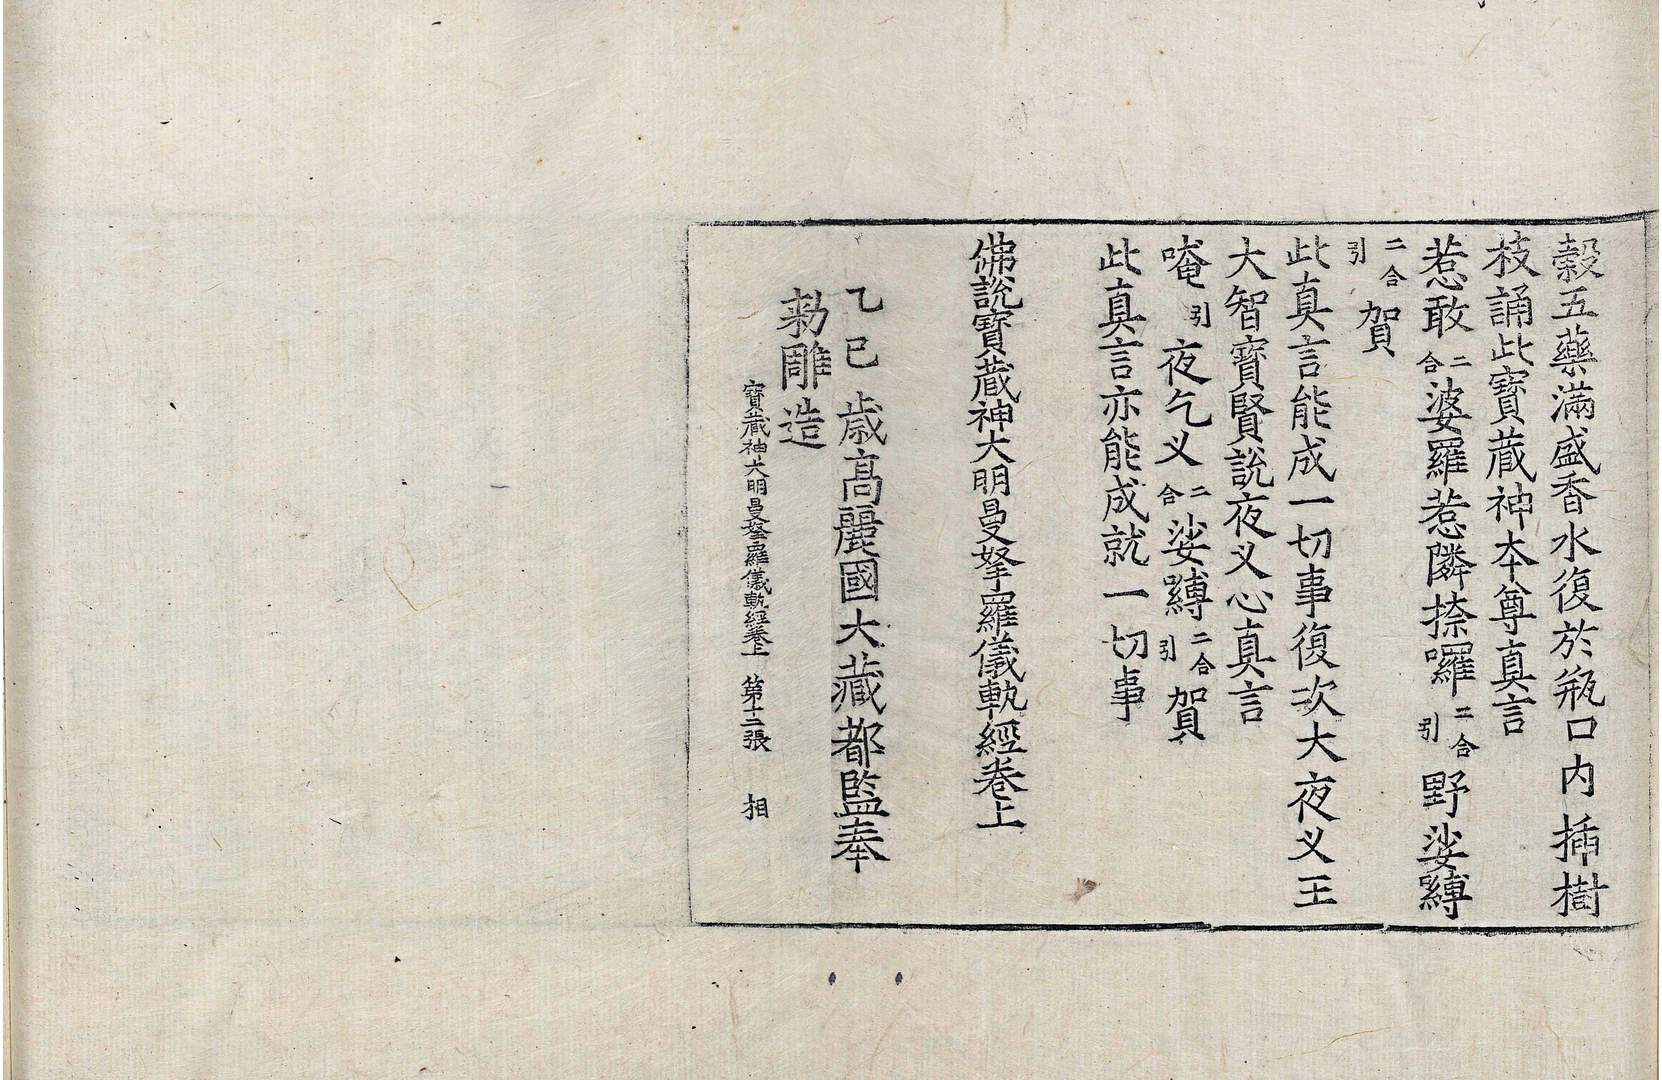 穀五藥滿盛香水復於瓶口内揷樹
枝誦此寶蔵神夲尊真言
惹敢二合婆羅惹隣捺囉二合引野娑嚩
二合引賀
此真言能成一切事復次大夜义王
大智寶賢說夜义心真言
唵引夜乞义二合娑嚩二合引賀
此真言亦能成就一切事
佛說寶蔵神大明曼拏羅儀軌經卷上
乙巳歳髙麗國大藏都監奉
勑雕造
寶蔵神大明曼拏羅儀軌經卷上 第十二張 相